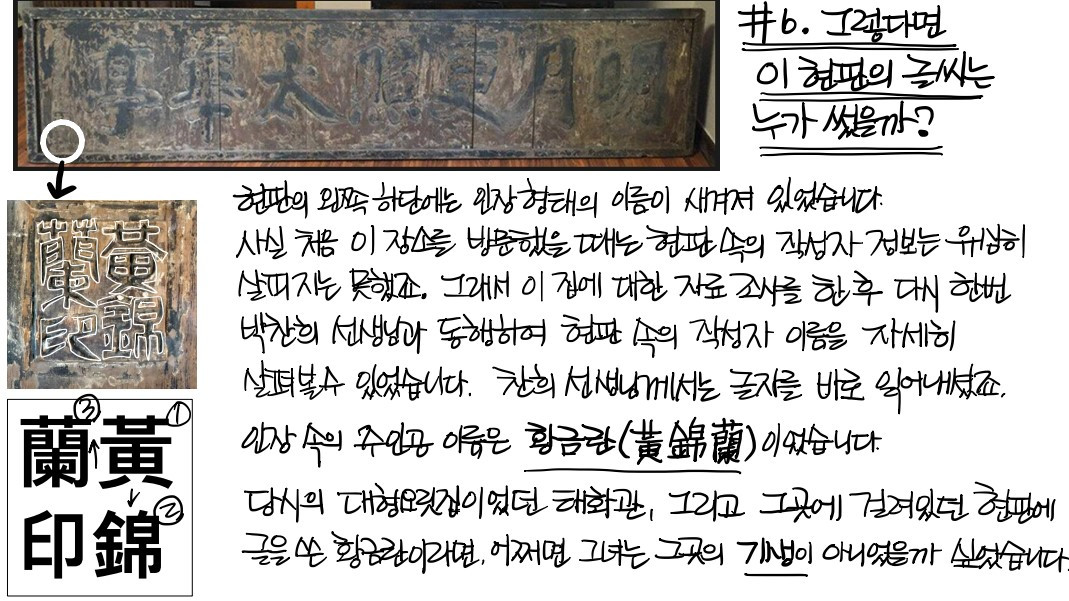 #6. 그렇다면
이 현판의 글씨는
누가 썼을까?
현판의 왼쪽 하단에는 인장 형태의 이름이 새겨져 있었습니다.
사실 처음 이 장소를 방문했을 때는 현판 속의 작성자 정보는 유심히
살피지는 못했죠. 그래서 이 집에 대한 자료 조사를 한 후 다시 한번
박찬희 선생님과 동행하여 현판 속의 작성자 이름을 자세히
살펴볼 수 있었습니다. 찬희 선생님께서는 글자를 바로 읽어내셨죠.
인장 속의 주인공 이름은 황금란(黃錦蘭)이었습니다.
당시의 대형요릿집이었던 태화관, 그리고 그곳에 걸려있던 현판에
글을 쓴 황금란이라면, 어쩌면 그녀는 그곳의 기생이 아니었을까 싶었습니다.
黃錦
蘭印
蘭③ 黃①
印 錦②